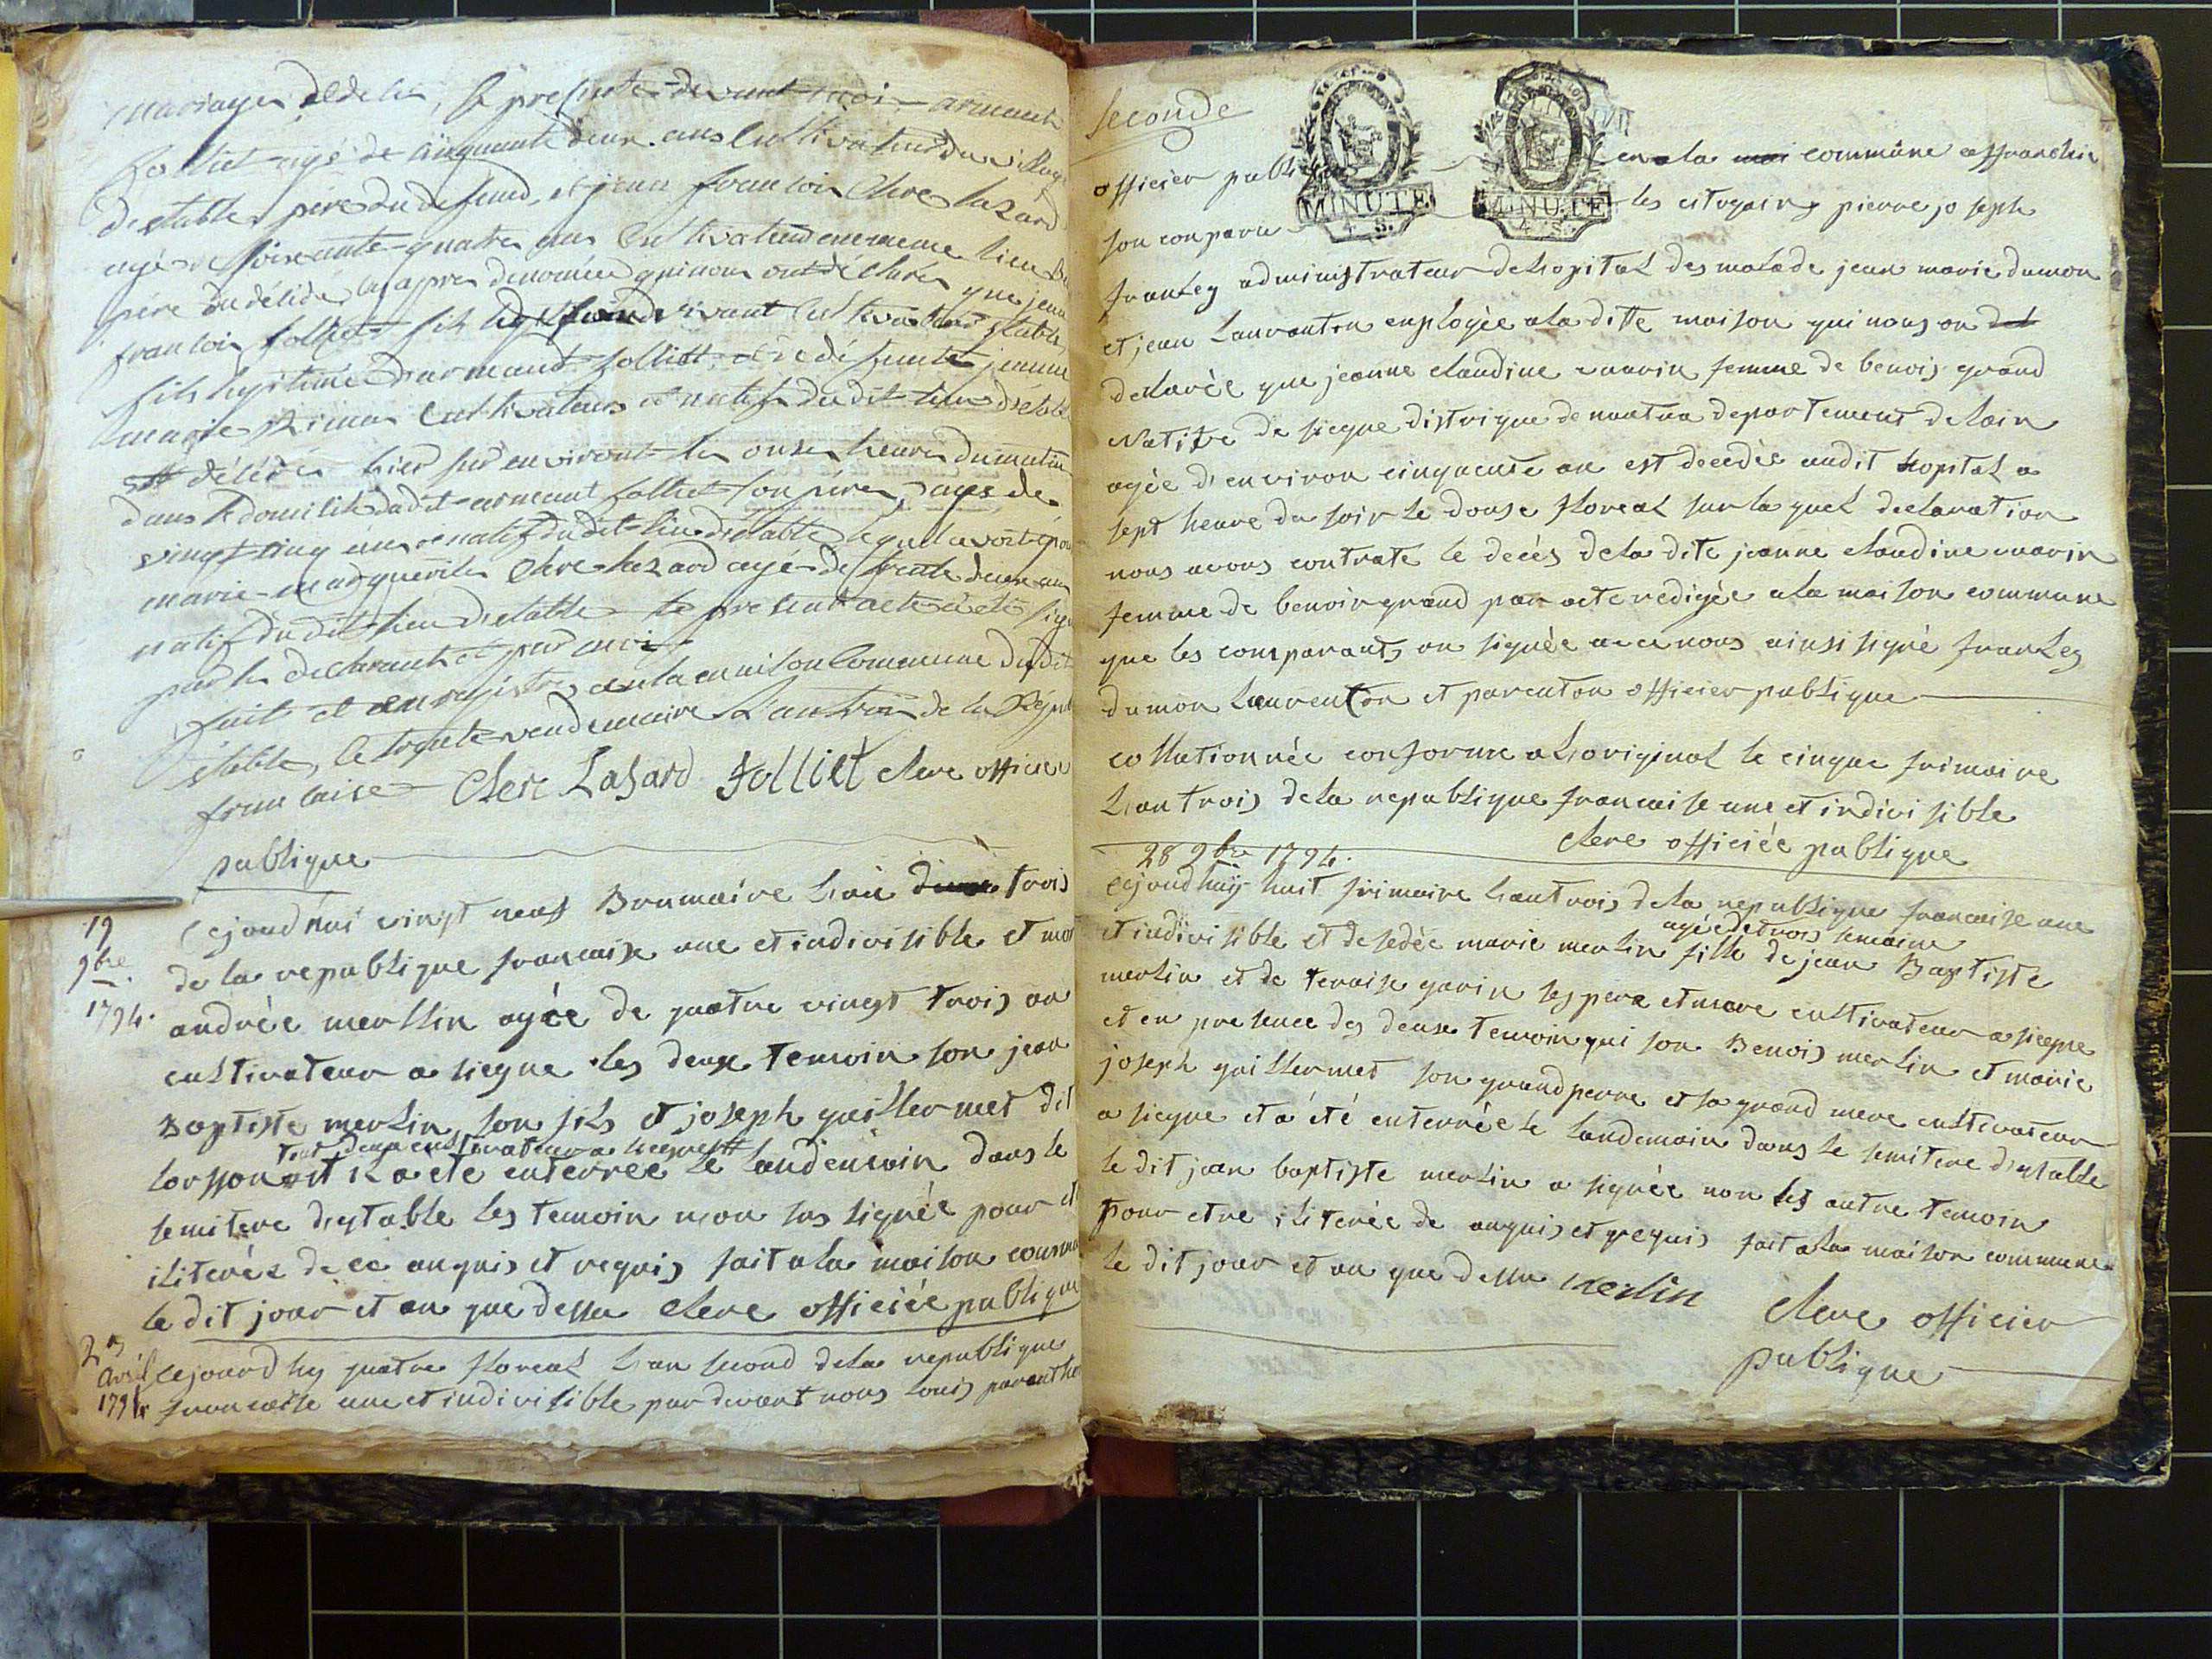 mariages dédelés, se presenté devant moi armant
folliet agé de cinquante deux ans cultivateur du village
destables père du defund, et jean francois Clere lazard
agé de soixante quatre ans cultivateur en meme lieu
père du délédés cy apres denomée qui nous ont déclarés que jean
francois folliet fils vivant cultivateur
fils legitime d'armant folliet et de defunte jeanne
marie cultivateurs et natif du dit lieu d'etable
délédé hier sur environt les onze heures du matin
dans le domicile dudit armant folliet son père, agés de
vingt cinq ans et natif du dit lieu d'etable lequel avoit
marie marguerite Clere lazard agé de trente deux ans
natif du dit lieu d'etable le present acte a été
par les declarants et par moi
fait et enregistré en la maison Commune du dit
étable, le trente vendemaire L'an trois de la
francaise Clere Lasard folliet clere officier
publique
19
9bre
1794.
Cejourdhui vingt neuf Brumaire L'an trois
de la republique francaise une et indivisible et mor
andrée merllin agée de quatre vingt trois an
cultivateur a siegne les deux temoin son jean
Baptiste merlin son fils et joseph guillermet dit
tout deux cultivateur a siegne
et il a ete enterree le landemain dans le
semitere dystable les temoin non pas signée pour et
iliterée de ce anquis et requis fait a la maison commu
le dit jour et an que dessu clere officiée publique
23
avril
1794
cejourdhy quatre floreal L'an second de la republique
francaise une et indivisible par devant nous Louis
seconde
officier publi en la commune affranchie
son conparu les citoyains pierre joseph
franley administrateur de hopital des malade jean marie dumon
et jean Lauranton employée a la ditte maison qui nous on
declarée que jeanne claudine marin femme de benois grand
Native de siegne distrique de nantua departement de Lain
agée d'environ cinquente an est decedée audit hopital a
sept heure du soir le douse floreal sur la quel declaration
nous avons contraté le decés de la dite jeanne claudine marin
femme de benois grand par acte redigée a la maison commune
que les comparants on signée avec nous ainsi signé franley
dumon Laurenton et parenton officier publique
collationnée conforme a L'original le cinque frimaire
L'an trois de la republique francaise une et indivisible
clere officiée publique
28 9bre 1794.
Cejourdhuy huit frimaire L'an trois de la republique francaise une
agée de trois semaine
et indivisible et desedée marie merlin fille de jean Baptiste
merlin et de teraise garin ses pere et mere cultivateur a siegne
et en presence des deuse temoin qui son Benois merlin et marie
joseph guillermet son grand perre et sa grand mere cultivateur
a siegne et a été enterrée le landemain dans le semitere dystable
le dit jean baptiste merlin a signée non les autre temoin
pour etre iliterée de anquis et requis fait a la maison commune
le dit jour et an que dessu merlin clere officier
publique
MINUTE
MINUTE